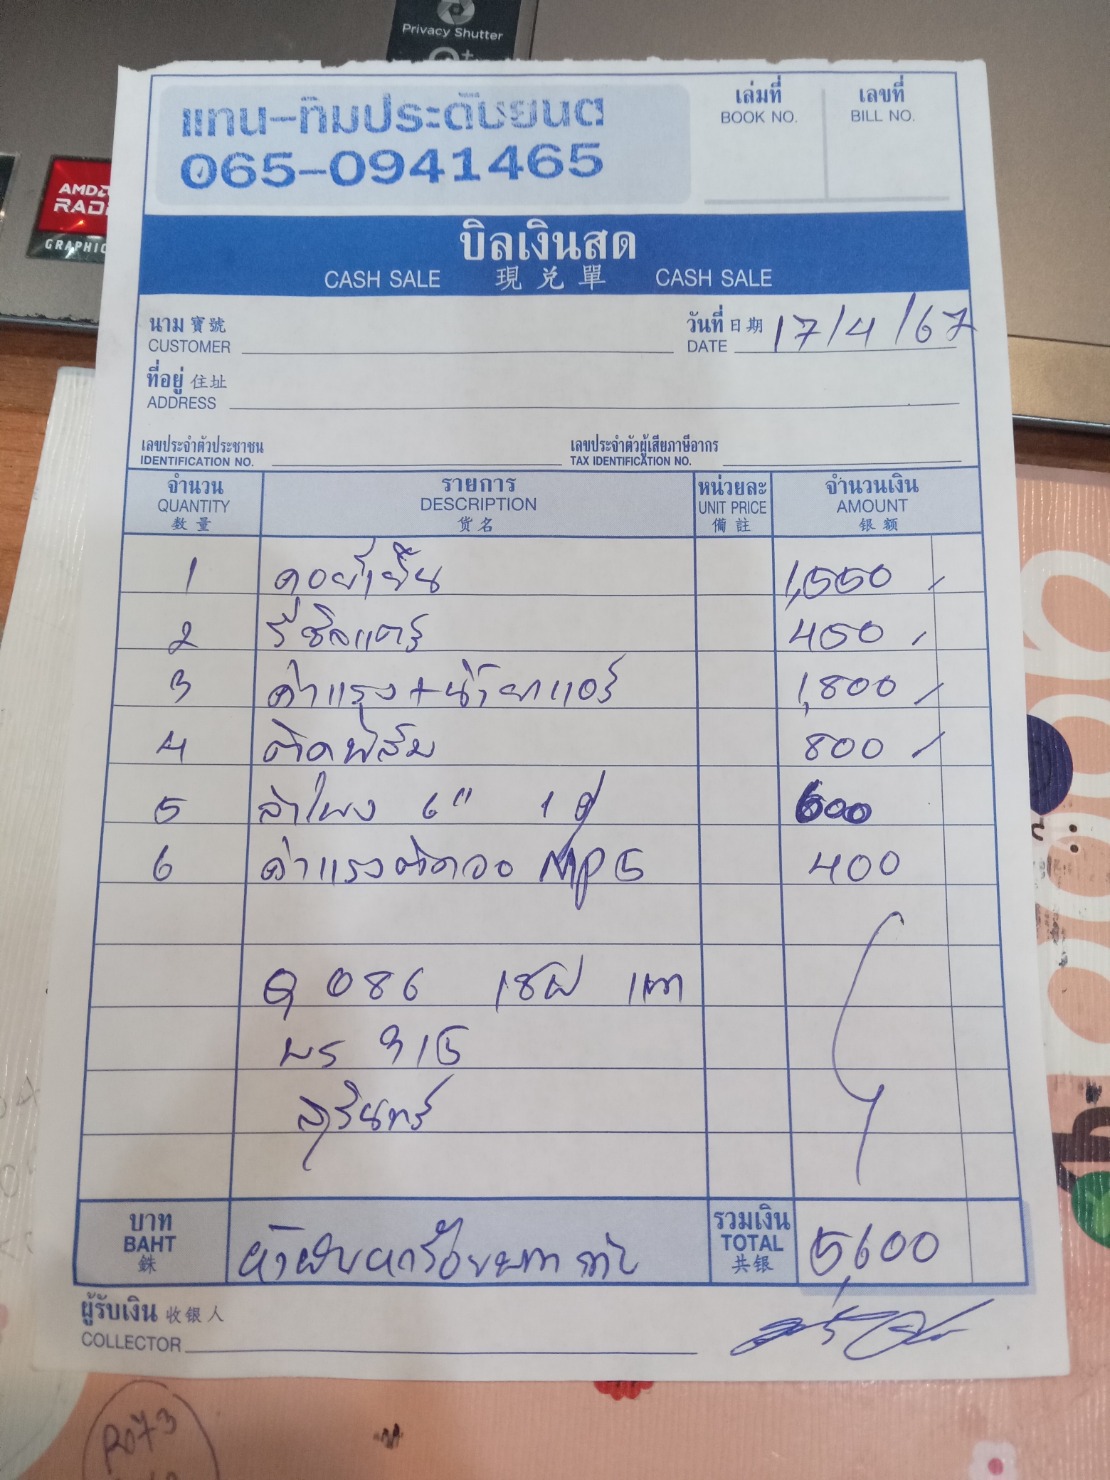 Privacy Shutter
AMD
RADE
GRAPHIC
แทน-ทิมประดับยนต์
065-0941465
เล่มที่ เลขที่
BOOK NO. BILL NO.
บิลเงินสด
CASH SALE 現兑單 CASH SALE
นาม 寶號 วันที่ 日期 17/4/67
CUSTOMER DATE
ที่อยู่ 住址
ADDRESS
เลขประจำตัวประชาชน เลขประจำตัวผู้เสียภาษีอากร
IDENTIFICATION NO. TAX IDENTIFICATION NO.
จำนวน รายการ หน่วยละ จำนวนเงิน
QUANTITY DESCRIPTION UNIT PRICE AMOUNT
数量 货名 備註 银额
1 คอยล์เย็น 1,550
2 รีซิลแดร์ 450
3 ค่าแรง+น้ำยาแอร์ 1,800
4 ติดฟิล์ม 800
5 ลำโพง 6" 1 คู่ 600
6 ค่าแรงติดจอ MP5 400
086
315
สุรินทร์
บาท ห้าพันหกร้อยบาทถ้วน รวมเงิน 5,600
BAHT TOTAL
銖 共银
ผู้รับเงิน 收银人
COLLECTOR
R073